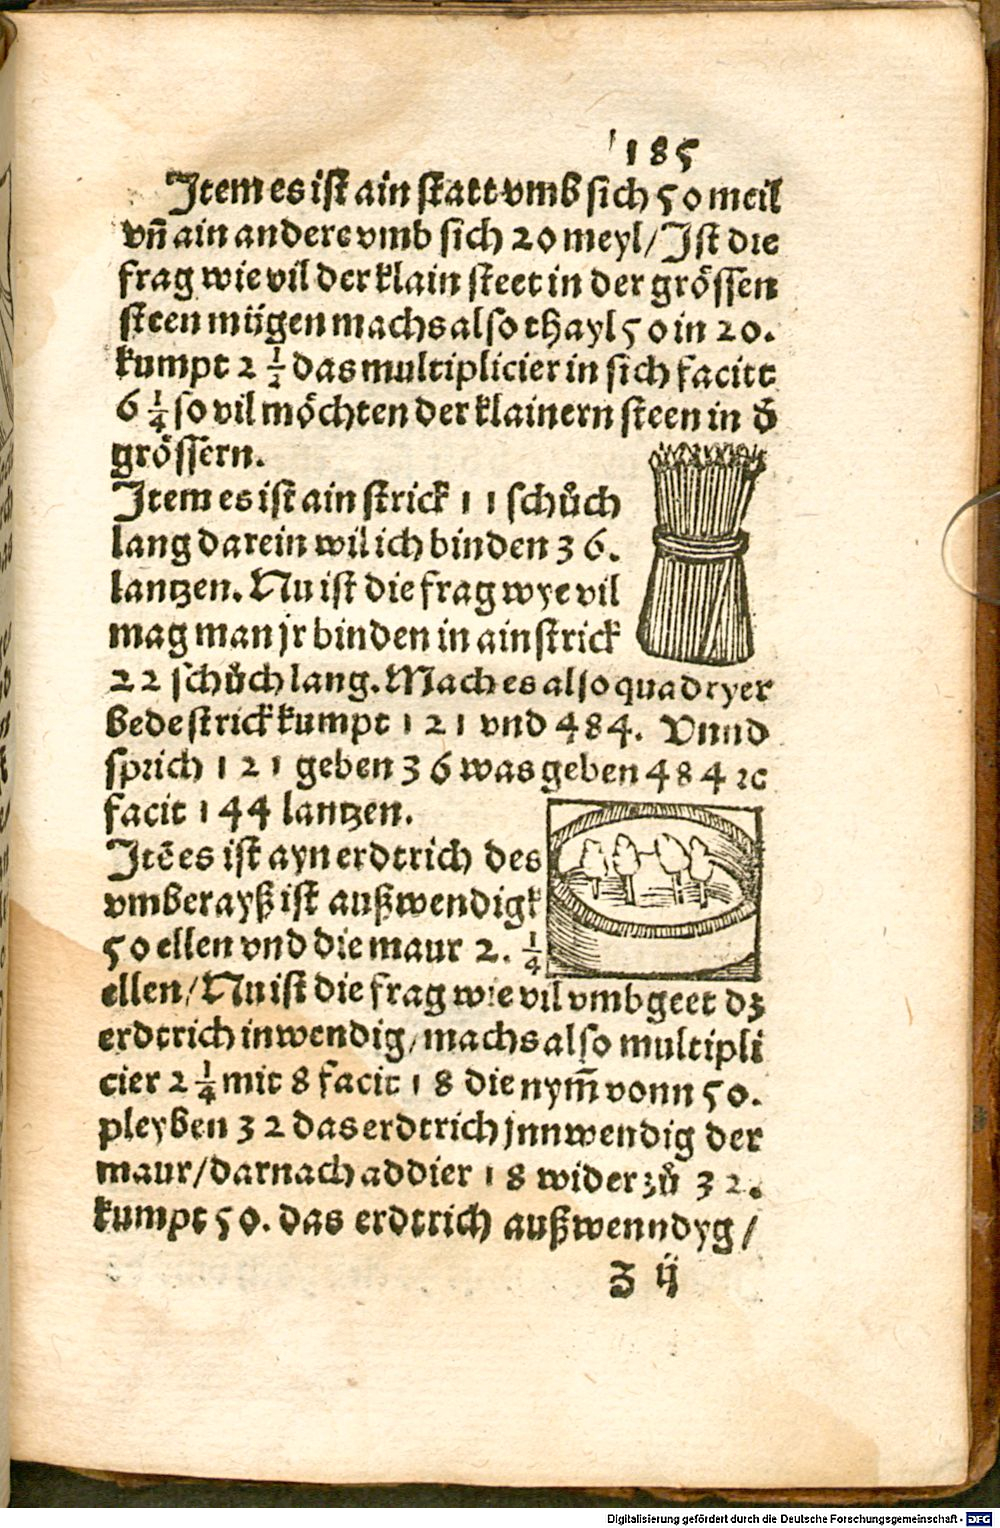 185
Jtem es ist ain statt vmb sich 50 meil
vn̄ ain andere vmb sich 20 meyl/Jst die
frag wie vil der klain steet in der grössen
steen mügen machs also thayl 50 in 20.
kumpt 2 1/2 das multiplicier in sich facitt
6 1/4 so vil möchten der klainern steen in d̄
grössern.
Jtem es ist ain strick 11 schůch
lang darein wil ich binden 36.
lantzen. Nu ist die frag wye vil
mag man jr binden in ain strick
22 schůch lang. Mach es also quadryer
bede strick kumpt 121 vnd 484. Vnnd
sprich 121 geben 36 was geben 484 ꝛc
facit 144 lantzen.
Jtē es ist ayn erdtrich des
vmberayß ist außwendigk
50 ellen vnd die maur 2. 1/4
ellen/Nu ist die frag wie vil vmbgeet dz
erdtrich inwendig/machs also multipli
cier 2 1/4 mit 8 facit 18 die nym̄ vonn 50.
pleyben 32 das erdtrich jnnwendig der
maur/darnach addier 18 wider zů 32.
kumpt 50. das erdtrich außwenndyg/
Z ij
Digitalisierung gefördert durch die Deutsche Forschungsgemeinschaft - DFG